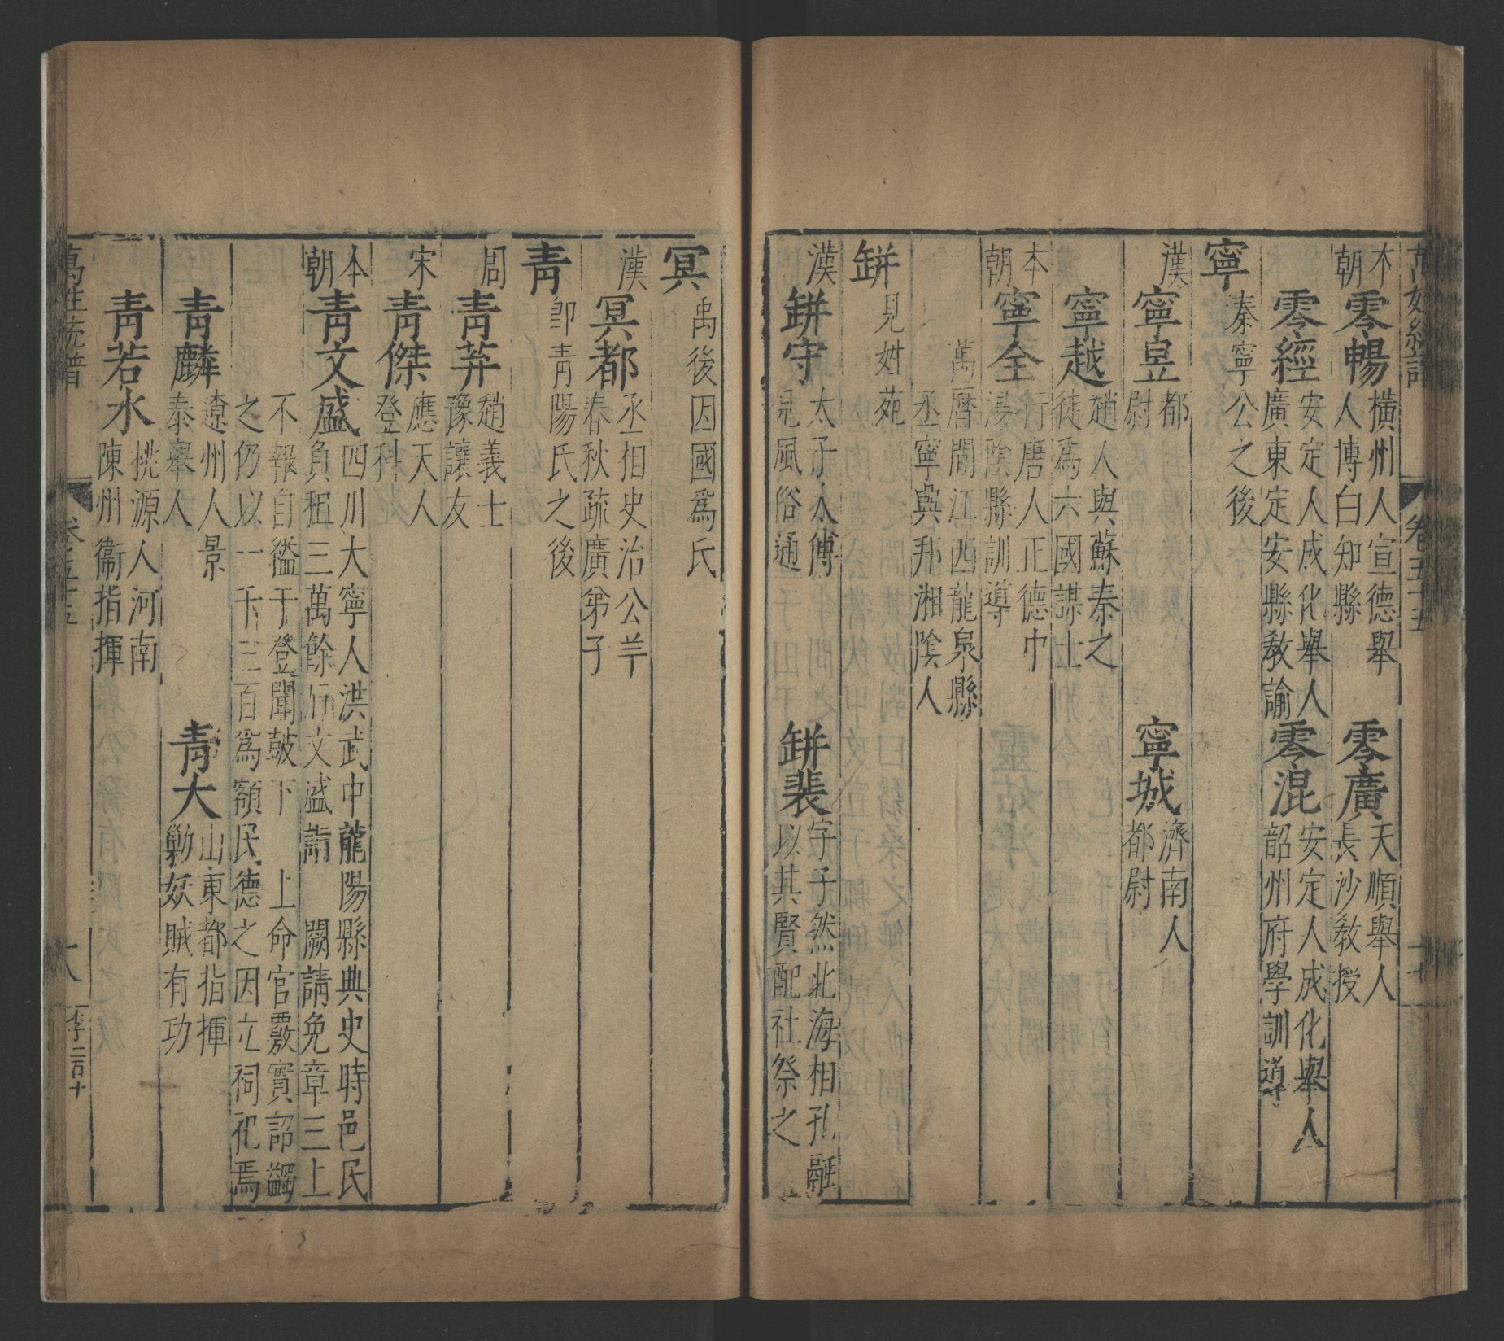 本朝 零暢 橫州人宣德舉人博白知縣 零廣 天順舉人長沙教授
零經 安定人成化舉人廣東定安縣教諭 零混 安定人成化舉人韶州府學訓導
寧 秦寧公之後
漢 寧昱 都尉 寧城 濟南人都尉
寧越 趙人與蘇秦之徒爲六國謀士
本朝 寧全 行唐人正德中湯陰縣訓導
萬曆間江西龍泉縣丞寧與邦湘陰人
缾 見姓苑
漢 缾守 太子太傅見風俗通 缾裴 字子然北海相孔融以其賢配社祭之
冥 禹後因國爲氏
漢 冥都 丞相史治公羊春秋疏廣弟子
青 即青陽氏之後
周 青荓 趙義士豫讓友
宋 青傑 應天人登科
本朝 青文盛 四川大寧人洪武中龍陽縣典史時邑民負租三萬餘石文盛詣 闕請免章三上
不報自縊于登聞皷下 上命官覈實詔蠲之仍以一千三百爲額民德之因立祠祀焉
青麟 遼州人景泰舉人 青大 山東都指揮勦妖賊有功
青若水 桃源人河南陳州衞指揮
萬姓統譜 卷五十五 十八 李二百十